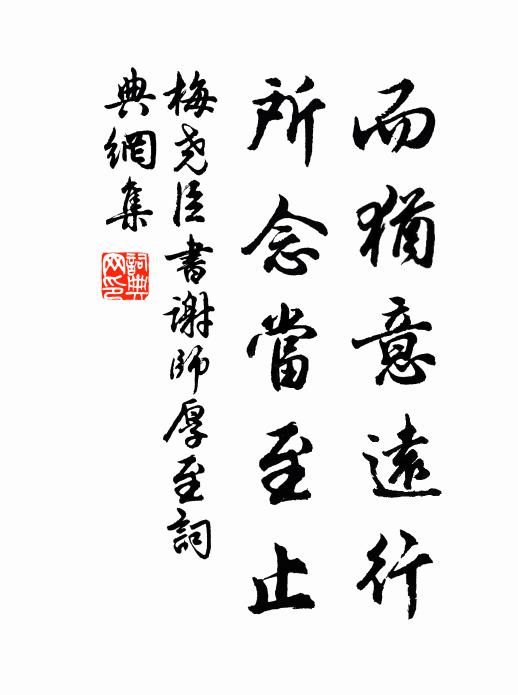 而猶意遠行
所念當至止
梅堯臣書謝師厚至詞
典網集
詞典网印